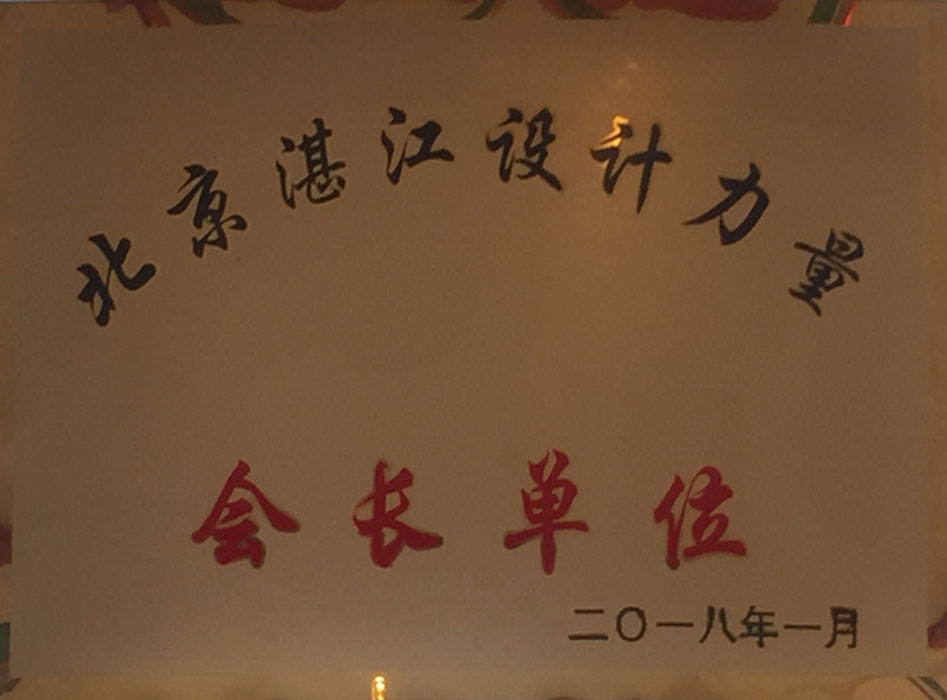 北京湛江设计力量
会长单位
二〇一八年一月